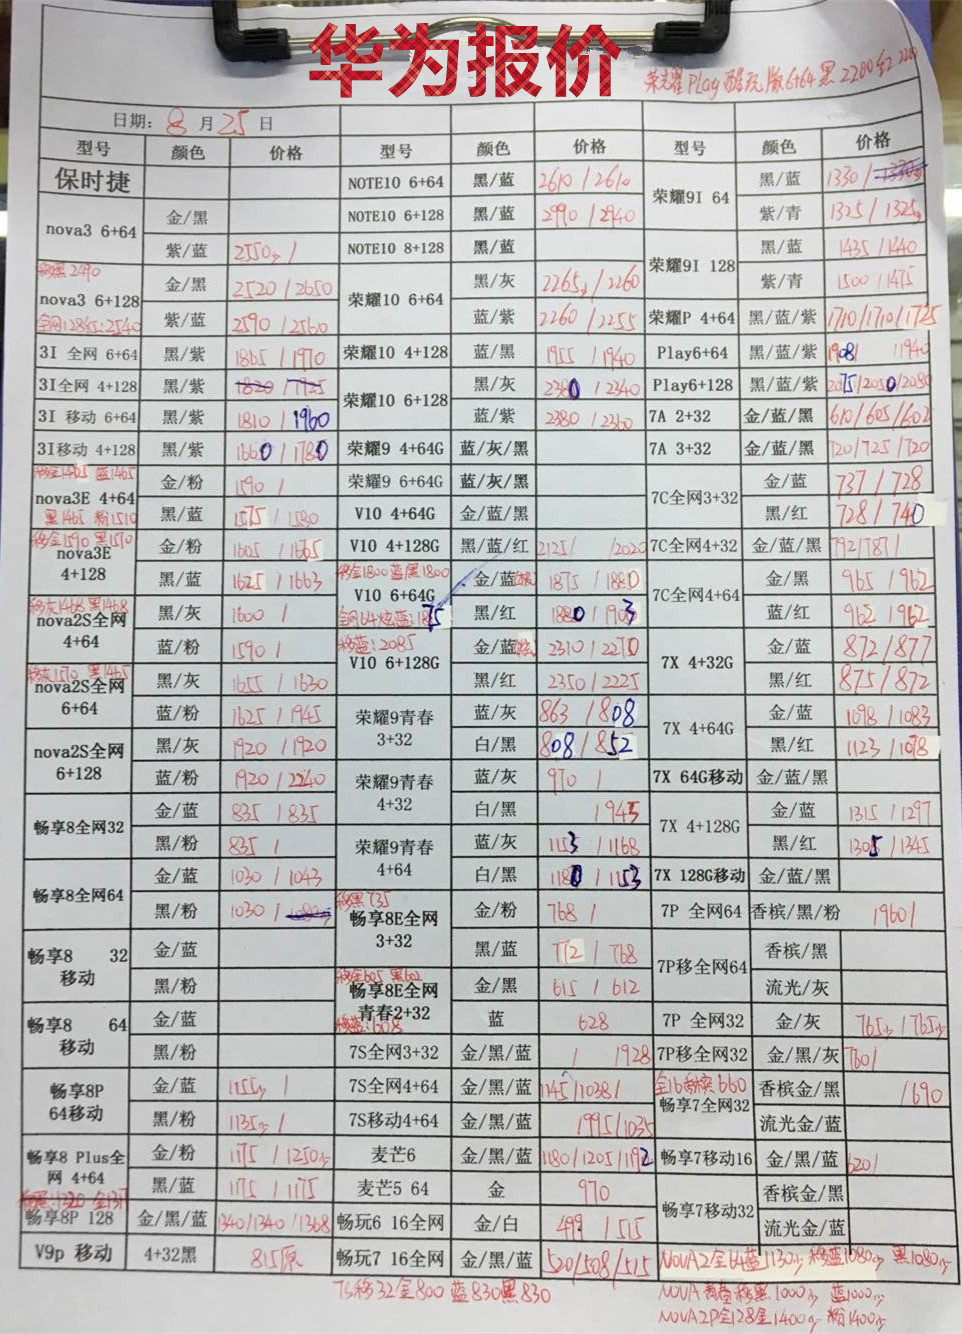 华为报价
荣耀Play酷玩版6+64黑2200红2200
日期: 8 月 25 日
型号 颜色 价格 型号 颜色 价格 型号 颜色 价格
保时捷 NOTE10 6+64 黑/蓝 2610/2610 荣耀9I 64 黑/蓝 1330/
nova3 6+64 金/黑 NOTE10 6+128 黑/蓝 2990/2940 紫/青 1325/1325
紫/蓝 2550/ NOTE10 8+128 黑/蓝 荣耀9I 128 黑/蓝 1435/1440
2490
nova3 6+128 金/黑 2520/2650 荣耀10 6+64 黑/灰 2265/2260 紫/青 1500/1475
紫/蓝 2590/2560 蓝/紫 2260/2255 荣耀P 4+64 黑/蓝/紫 1710/1710/1725
3I 全网 6+64 黑/紫 1865/1970 荣耀10 4+128 蓝/黑 1955/1940 Play6+64 黑/蓝/紫 1908/ /1940
3I全网 4+128 黑/紫 1820/1925 荣耀10 6+128 黑/灰 2380/2340 Play6+128 黑/蓝/紫 2075/2050/2080
3I 移动 6+64 黑/紫 1810/1960 蓝/紫 2380/2360 7A 2+32 金/蓝/黑 610/605/602
3I移动 4+128 黑/紫 1660/1780 荣耀9 4+64G 蓝/灰/黑 7A 3+32 金/蓝/黑 720/725/720
移金1465 蓝1465
nova3E 4+64 金/粉 1590/ 荣耀9 6+64G 蓝/灰/黑 7C全网3+32 金/蓝 737/728
黑1465 粉1510 黑/蓝 1575/1580 V10 4+64G 金/蓝/黑 黑/红 728/740
移金1590 黑1570
nova3E 4+128 金/粉 1605/1665 V10 4+128G 黑/蓝/红 2125/ /2020 7C全网4+32 金/蓝/黑 792/787/
移金1800蓝/黑1800
黑/蓝 1625/1663 V10 6+64G 金/蓝 1875/1880 7C全网4+64 金/黑 965/962
移灰1468 黑1468
nova2S全网 4+64 黑/灰 1600/ 全网64炫蓝:1875 黑/红 1880/1903 蓝/红 962/962
移蓝:2085
蓝/粉 1590/ V10 6+128G 金/蓝 2310/2270 7X 4+32G 金/蓝 872/877
移灰1570 黑1465
nova2S全网 6+64 黑/灰 1655/1630 黑/红 2350/2225 黑/红 875/872
蓝/粉 1625/1945 荣耀9青春 3+32 蓝/灰 863/808 7X 4+64G 金/蓝 1098/1083
nova2S全网 6+128 黑/灰 1920/1920 白/黑 808/852 黑/红 1123/1078
蓝/粉 1920/2240 荣耀9青春 4+32 蓝/灰 970/ 7X 64G移动 金/蓝/黑
畅享8全网32 金/蓝 835/835 白/黑 /945 7X 4+128G 金/蓝 1315/1297
黑/粉 835/ 荣耀9青春 4+64 蓝/灰 1153/1168 黑/红 1305/1345
畅享8全网64 金/蓝 1030/1043 白/黑 1180/1153 7X 128G移动 金/蓝/黑
移黑735
黑/粉 1030/ 畅享8E全网 3+32 金/粉 768/ 7P 全网64 香槟/黑/粉 1960/
畅享8 32 移动 金/蓝 黑/蓝 772/768 7P移全网64 香槟/黑
移金605 黑602
黑/粉 畅享8E全网 青春2+32 金/黑 615/612 流光/灰
移蓝:608
畅享8 64 移动 金/蓝 蓝 628 7P 全网32 金/灰 765/1765
黑/粉 7S全网3+32 金/黑/蓝 / 1928 7P移全网32 金/黑/灰 760/
畅享8P 64移动 金/蓝 1155/ 7S全网4+64 金/黑/蓝 1145/1038/ 全16香槟660 畅享7全网32 香槟金/黑 /690
黑/粉 1135/ 7S移动4+64 金/黑/蓝 1995/1035 流光金/蓝
畅享8 Plus全网 4+64 金/粉 1175/1250 麦芒6 金/黑/蓝 1180/1205/1192 畅享7移动16 金/黑/蓝 620/
黑/蓝 1175/1175 麦芒5 64 金 970 畅享7移动32 香槟金/黑
1320 金1317
畅享8P 128 金/黑/蓝 1340/1340/1368 畅玩6 16全网 金/白 499/515 流光金/蓝
V9p 移动 4+32黑 815原 畅玩7 16全网 金/黑/蓝 520/508/515 NOVA2全64蓝1130 移蓝1080 黑1080
7S移32金800 蓝830黑830 NOVA青春移黑1000 蓝1000
NOVA2P全128金1400 粉1400